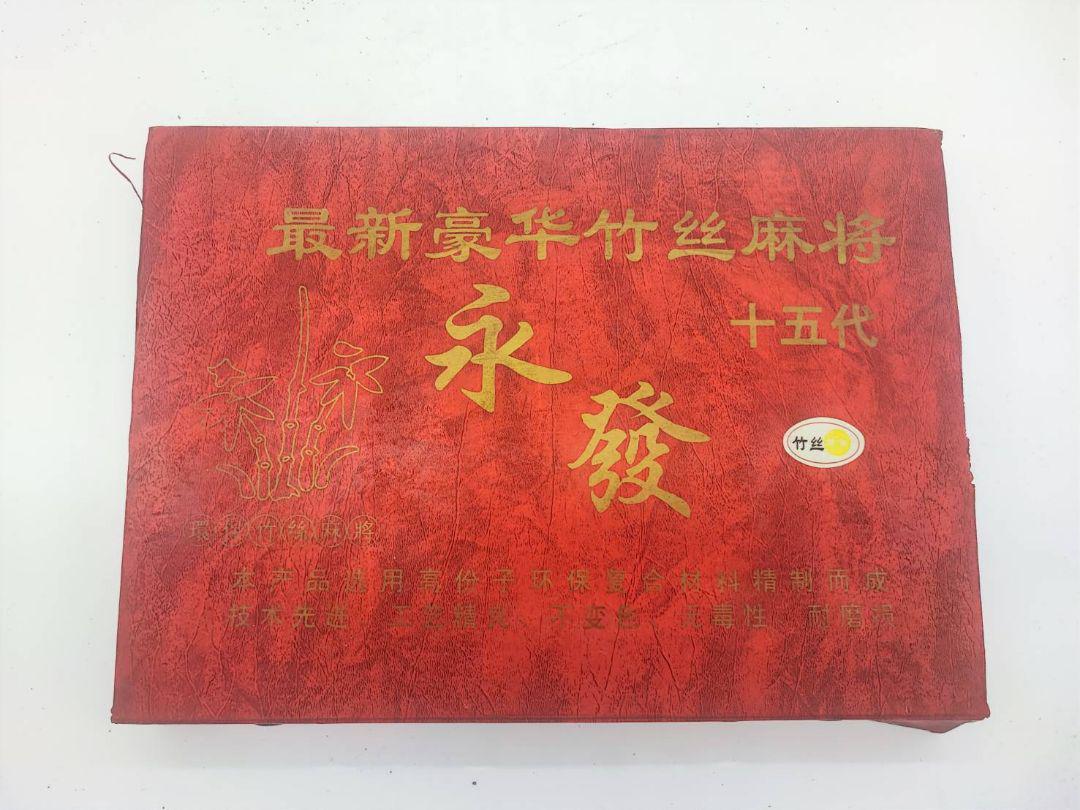 最新豪华竹丝麻将
十五代
永發
竹丝
環保竹絲麻將
本产品选用高份子环保复合材料精制而成
技术先进 工艺精良、不变色 无毒性 耐磨损